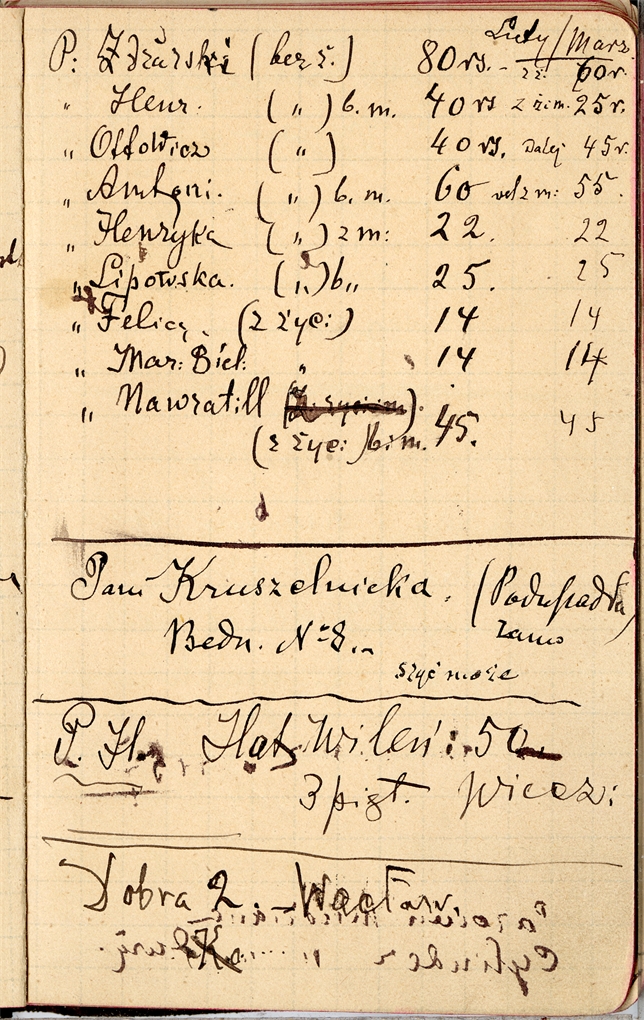 Luty / Marz.
P: Zdzarski (bez ż.) 80 rs. - 60 r.
" Henr: (") b. m. 40 rs z zim. 25 r.
" Ottowicz (") 40 rs. Dalej 45 r.
" Antoni. (") b. m. 60 55.
" Henryka (") z m: 22. 22
" Lipowska. (") b " 25. 25
" Felicy. (z życ:) 14 14
" Mar: Biel: " 14 14
" Nawratill
(z życ:) b. m. 45. 45
Pani Kruszelnicka. (Podupadła
Bedn. № 8. zamo
szyć może
P. H. Hat. Wileń: 50.
3 piąt. wiecz:
Dobra 2. Wacław.
Cylinder "